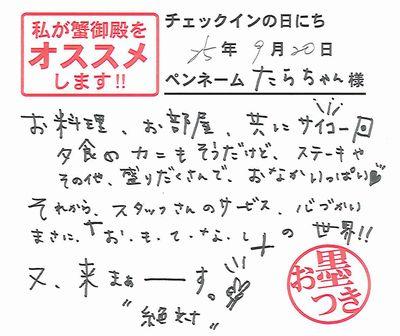 私が蟹御殿を
オススメ
します!!
チェックインの日にち
25年9月20日
ペンネーム たらちゃん 様
お料理、お部屋、共にサイコー
夕食のカニもそうだけど、ステーキや
その他、盛りだくさんで、おなかいっぱい♥
それから、スタッフさんのサービス、心づかい
まさに、"お・も・て・な・し"の世界!!
又、来まぁーーす。
"絶対"
お墨つき